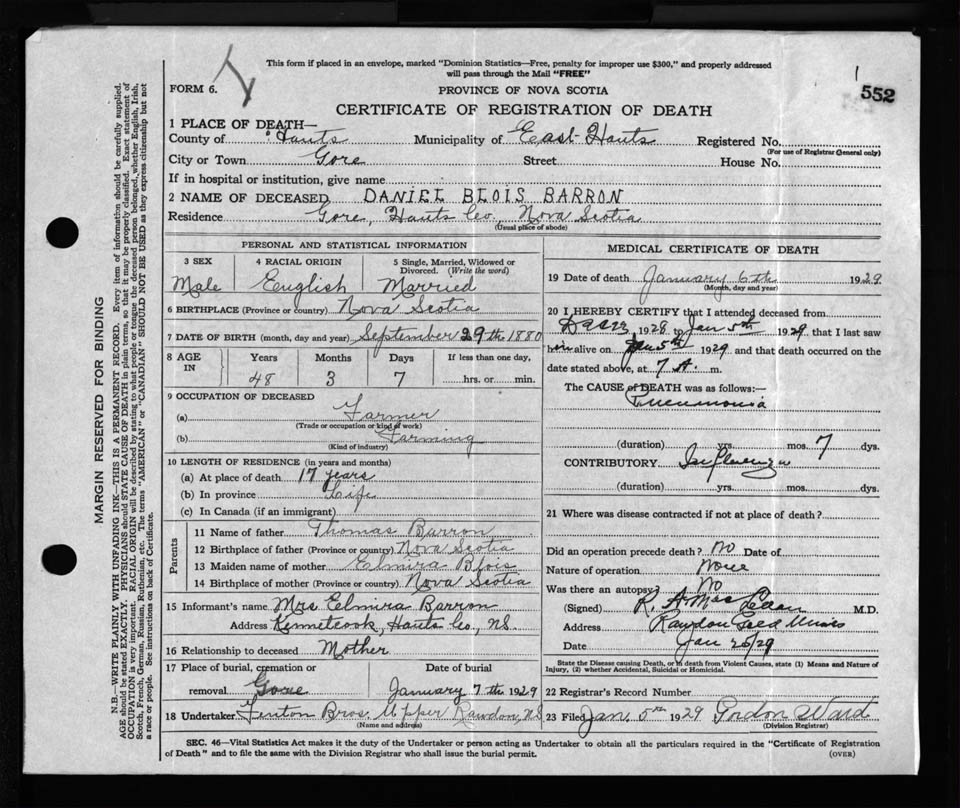 This form if placed in an envelope, marked "Dominion Statistics—Free, penalty for improper use $300," and properly addressed
will pass through the Mail "FREE"
1
552
FORM 6.
PROVINCE OF NOVA SCOTIA
CERTIFICATE OF REGISTRATION OF DEATH
1 PLACE OF DEATH—
County of Hants Municipality of East Hants Registered No.
(For use of Registrar General only)
City or Town Gore Street House No.
If in hospital or institution, give name
2 NAME OF DECEASED DANIEL BLOIS BARRON
Residence Gore, Hants Co., Nova Scotia
(Usual place of abode)
PERSONAL AND STATISTICAL INFORMATION
3 SEX 4 RACIAL ORIGIN 5 Single, Married, Widowed or
Divorced. (Write the word)
Male English Married
6 BIRTHPLACE (Province or country) Nova Scotia
7 DATE OF BIRTH (month, day and year) September 29th 1880
8 AGE IN Years Months Days If less than one day,
48 3 7 hrs. or min.
9 OCCUPATION OF DECEASED
(a) Farmer
(Trade or occupation or kind of work)
(b) Farming
(Kind of industry)
10 LENGTH OF RESIDENCE (in years and months)
(a) At place of death 17 years
(b) In province Life
(c) In Canada (if an immigrant)
Parents
11 Name of father Thomas Barron
12 Birthplace of father (Province or country) Nova Scotia
13 Maiden name of mother Elmira Blois
14 Birthplace of mother (Province or country) Nova Scotia
15 Informant's name Mrs Elmira Barron
Address Kennetcook, Hants Co, N.S.
16 Relationship to deceased Mother
17 Place of burial, cremation or Date of burial
removal Gore January 7th 1929
18 Undertaker Fenton Bros. Upper Rawdon, N.S
(Name and address)
MEDICAL CERTIFICATE OF DEATH
19 Date of death January 6th 1929
(Month, day and year)
20 I HEREBY CERTIFY that I attended deceased from
1928 to Jan 5th 1929, that I last saw
him alive on Jan 5th 1929 and that death occurred on the
date stated above, at 7 A. m.
The CAUSE of DEATH was as follows:—
Pneumonia
(duration) yrs. mos. 7 dys.
CONTRIBUTORY Influenza
(duration) yrs. mos. dys.
21 Where was disease contracted if not at place of death?
Did an operation precede death? No Date of
Nature of operation None
Was there an autopsy? No
(Signed) R. A MacLean M.D.
Address Rawdon Gold Mines
Date Jan 26/29
State the Disease causing Death, or in death from Violent Causes, state (1) Means and Nature of
Injury, (2) whether Accidental, Suicidal or Homicidal.
22 Registrar's Record Number
23 Filed Jan, 5th 1929 Gordon Ward
(Division Registrar)
SEC. 46—Vital Statistics Act makes it the duty of the Undertaker or person acting as Undertaker to obtain all the particulars required in the "Certificate of Registration
of Death" and to file the same with the Division Registrar who shall issue the burial permit.
(OVER)
MARGIN RESERVED FOR BINDING
N.B.—WRITE PLAINLY WITH UNFADING INK—THIS IS A PERMANENT RECORD. Every item of information should be carefully supplied.
AGE should be stated EXACTLY. PHYSICIANS should STATE CAUSE OF DEATH in plain terms, so that it may be properly classified. Exact statement of
OCCUPATION is very important. RACIAL ORIGIN will be described by stating to what people or tongue the deceased person belonged, whether English, Irish,
Scotch, French, German, Russian, Ruthenian, etc. The terms "AMERICAN" or "CANADIAN" SHOULD NOT BE USED as they express citizenship but not
a race or people. See instructions on back of Certificate.